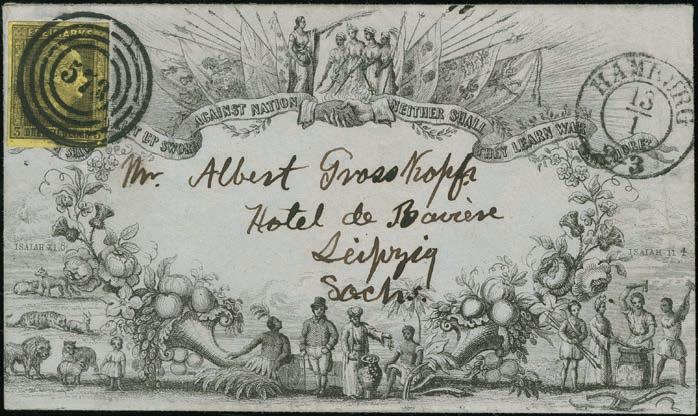 FREIMARKE
574
HAMBURG
13
1
3
UP SWORD AGAINST NATION NEITHER SHALL THEY LEARN WAR
Mr. Albert Grosskopf
Hotel de Bavière
Leipzig
Sachs.
ISAIAH 11.6
ISAIAH 11 4